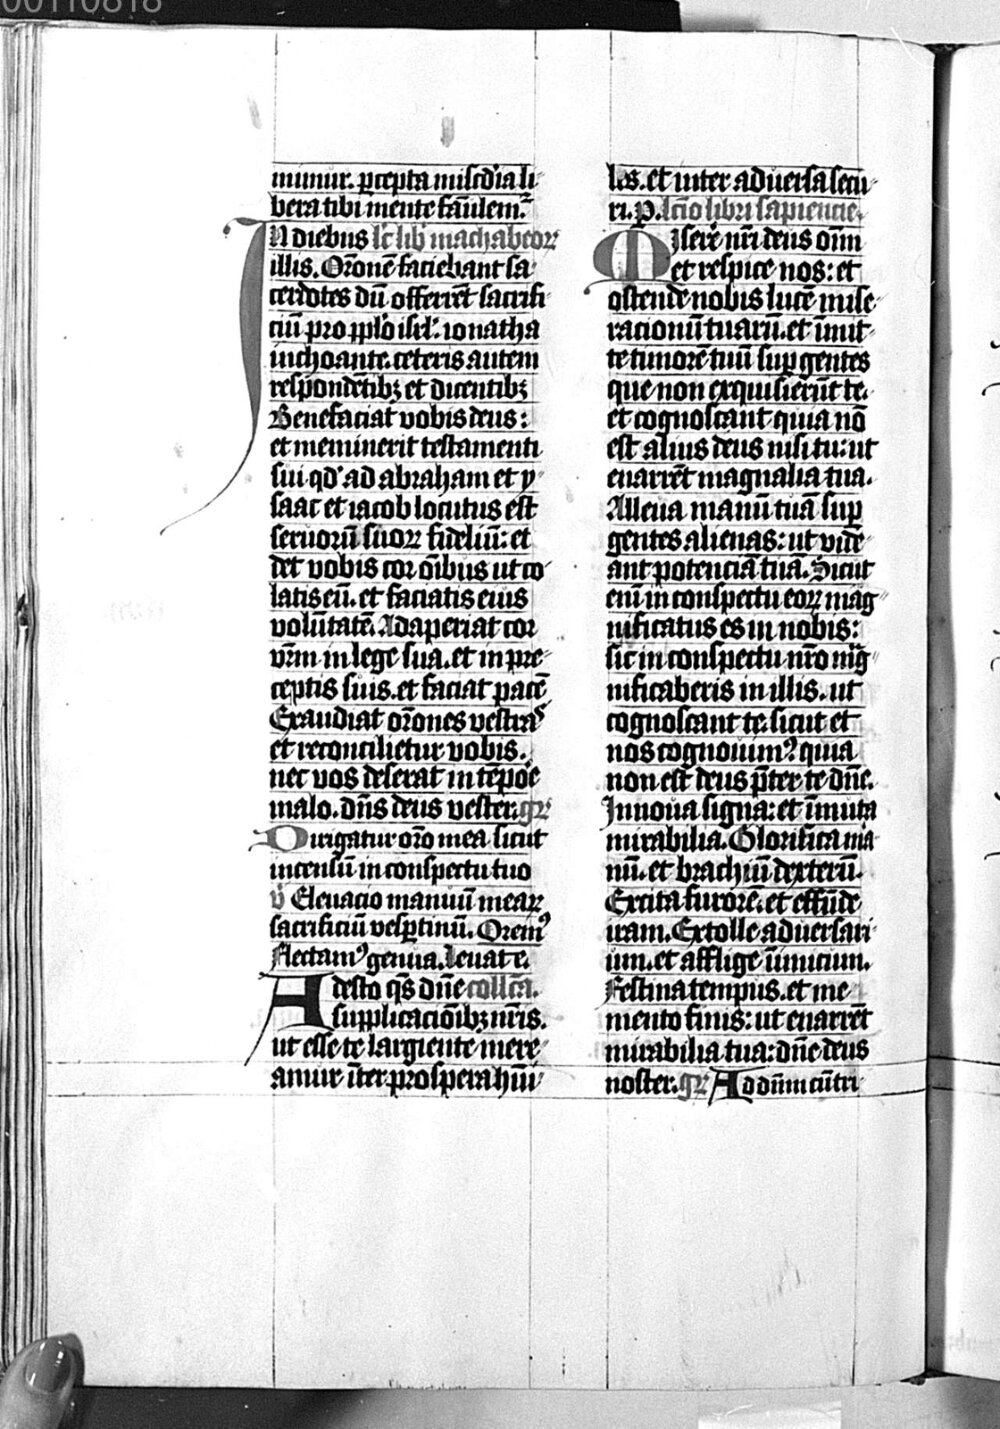 00110818
muniur. ꝑcepta misc̄dia li
bera tibi mente fam̄lem̄.
In diebus lc̄ lib̕ machabeoꝝ
illis. Or̄onē faciebant sa
cerdotes dū offerrēt sacrifi
ciū pro pplo isrl̕. ionatha
inchoante. ceteris autem
respondētibꝫ et dicentibꝫ
Benefaciat vobis deus:
et meminerit testamenti
sui qd̕ ad abraham et y
saac et iacob locutus est
seruorū suoꝝ fideliū: et
det vobis cor om̄ibus ut co
latis eū. et faciatis eius
volūtatē. Adaperiat cor
vr̄m in lege sua. et in pre
ceptis suis. et faciat pacē
Exaudiat or̄ones vestras
et reconcilietur vobis.
nec vos deserat in tēpore
malo. dn̄s deus vester. gr̄
Dirigatur or̄o mea sicut
incensū in conspectu tuo
v̕ Eleuacio manuū meaꝝ
sacrificiū vesꝑtinū. Oremꝰ
Flectamꝰ genua. Leuate.
Adesto qs̄ dn̄e coll̄ca.
supplicacōibꝫ nr̄is.
ut esse te largiente mere
amur īter prospera hūi
les. et inter aduersa secu
ri. P. lc̄io libri sapiencie.
Miserē nr̄i deus om̄n
et respice nos: et
ostende nobis lucē mise
racionū tuarū. et īmit
te timorē tuū suꝑ gentes
que non exquisierūt te.
et cognoscant quia nō
est alius deus nisi tu: ut
enarrēt magnalia tua.
Alleua manū tuā suꝑ
gentes alienas: ut vide
ant potenciā tuā. Sicut
enī in conspectu eoꝝ mag
nificatus es in nobis:
sic in conspectu nr̄o mag
nificaberis in illis. ut
cognoscant te. sicut et
nos cognouimꝰ quia
non est deus p̄ter te dn̄e.
Innoua signa: et īmuta
mirabilia. Glorifica ma
nū. et brachiū dexterū.
Excita furorē. et effūde
iram. Extolle aduersari
um. et afflige inimicum.
Festina tempus. et me
mento finis: ut enarrēt
mirabilia tua: dn̄e deus
noster. gr̄ Ad dn̄m cū tri